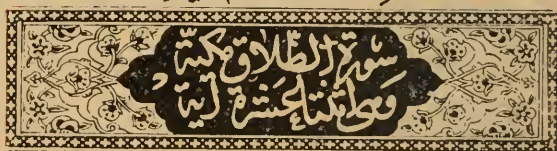 سُورَةُ الطَّلَاقِ مَكِّيَّةٌ
وَهِىَ اثْنَتَا عَشْرَةَ آيَةً